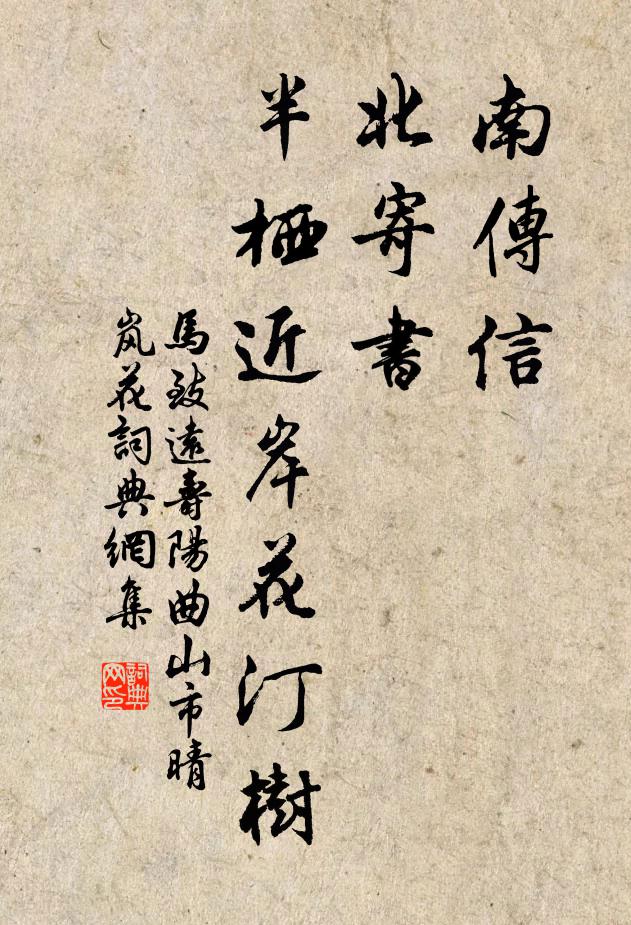 南傳信
北寄書
半栖近岸花汀樹
馬致遠壽陽曲山市晴
岚花詞典網集
詞典
网印